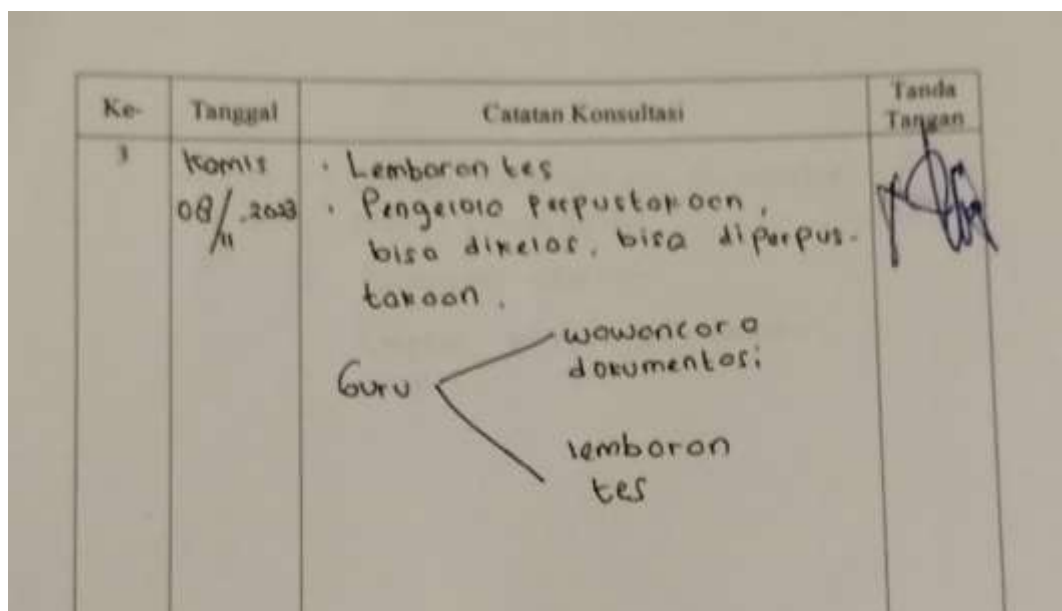 Ke- Tanggal Catatan Konsultasi Tanda Tangan
3
Kamis
08/11.2023
· Lembaran tes
· Pengelola perpustakaan,
bisa dikelas, bisa diperpus-
takaan.
Guru
wawancara
dokumentasi
lembaran
tes